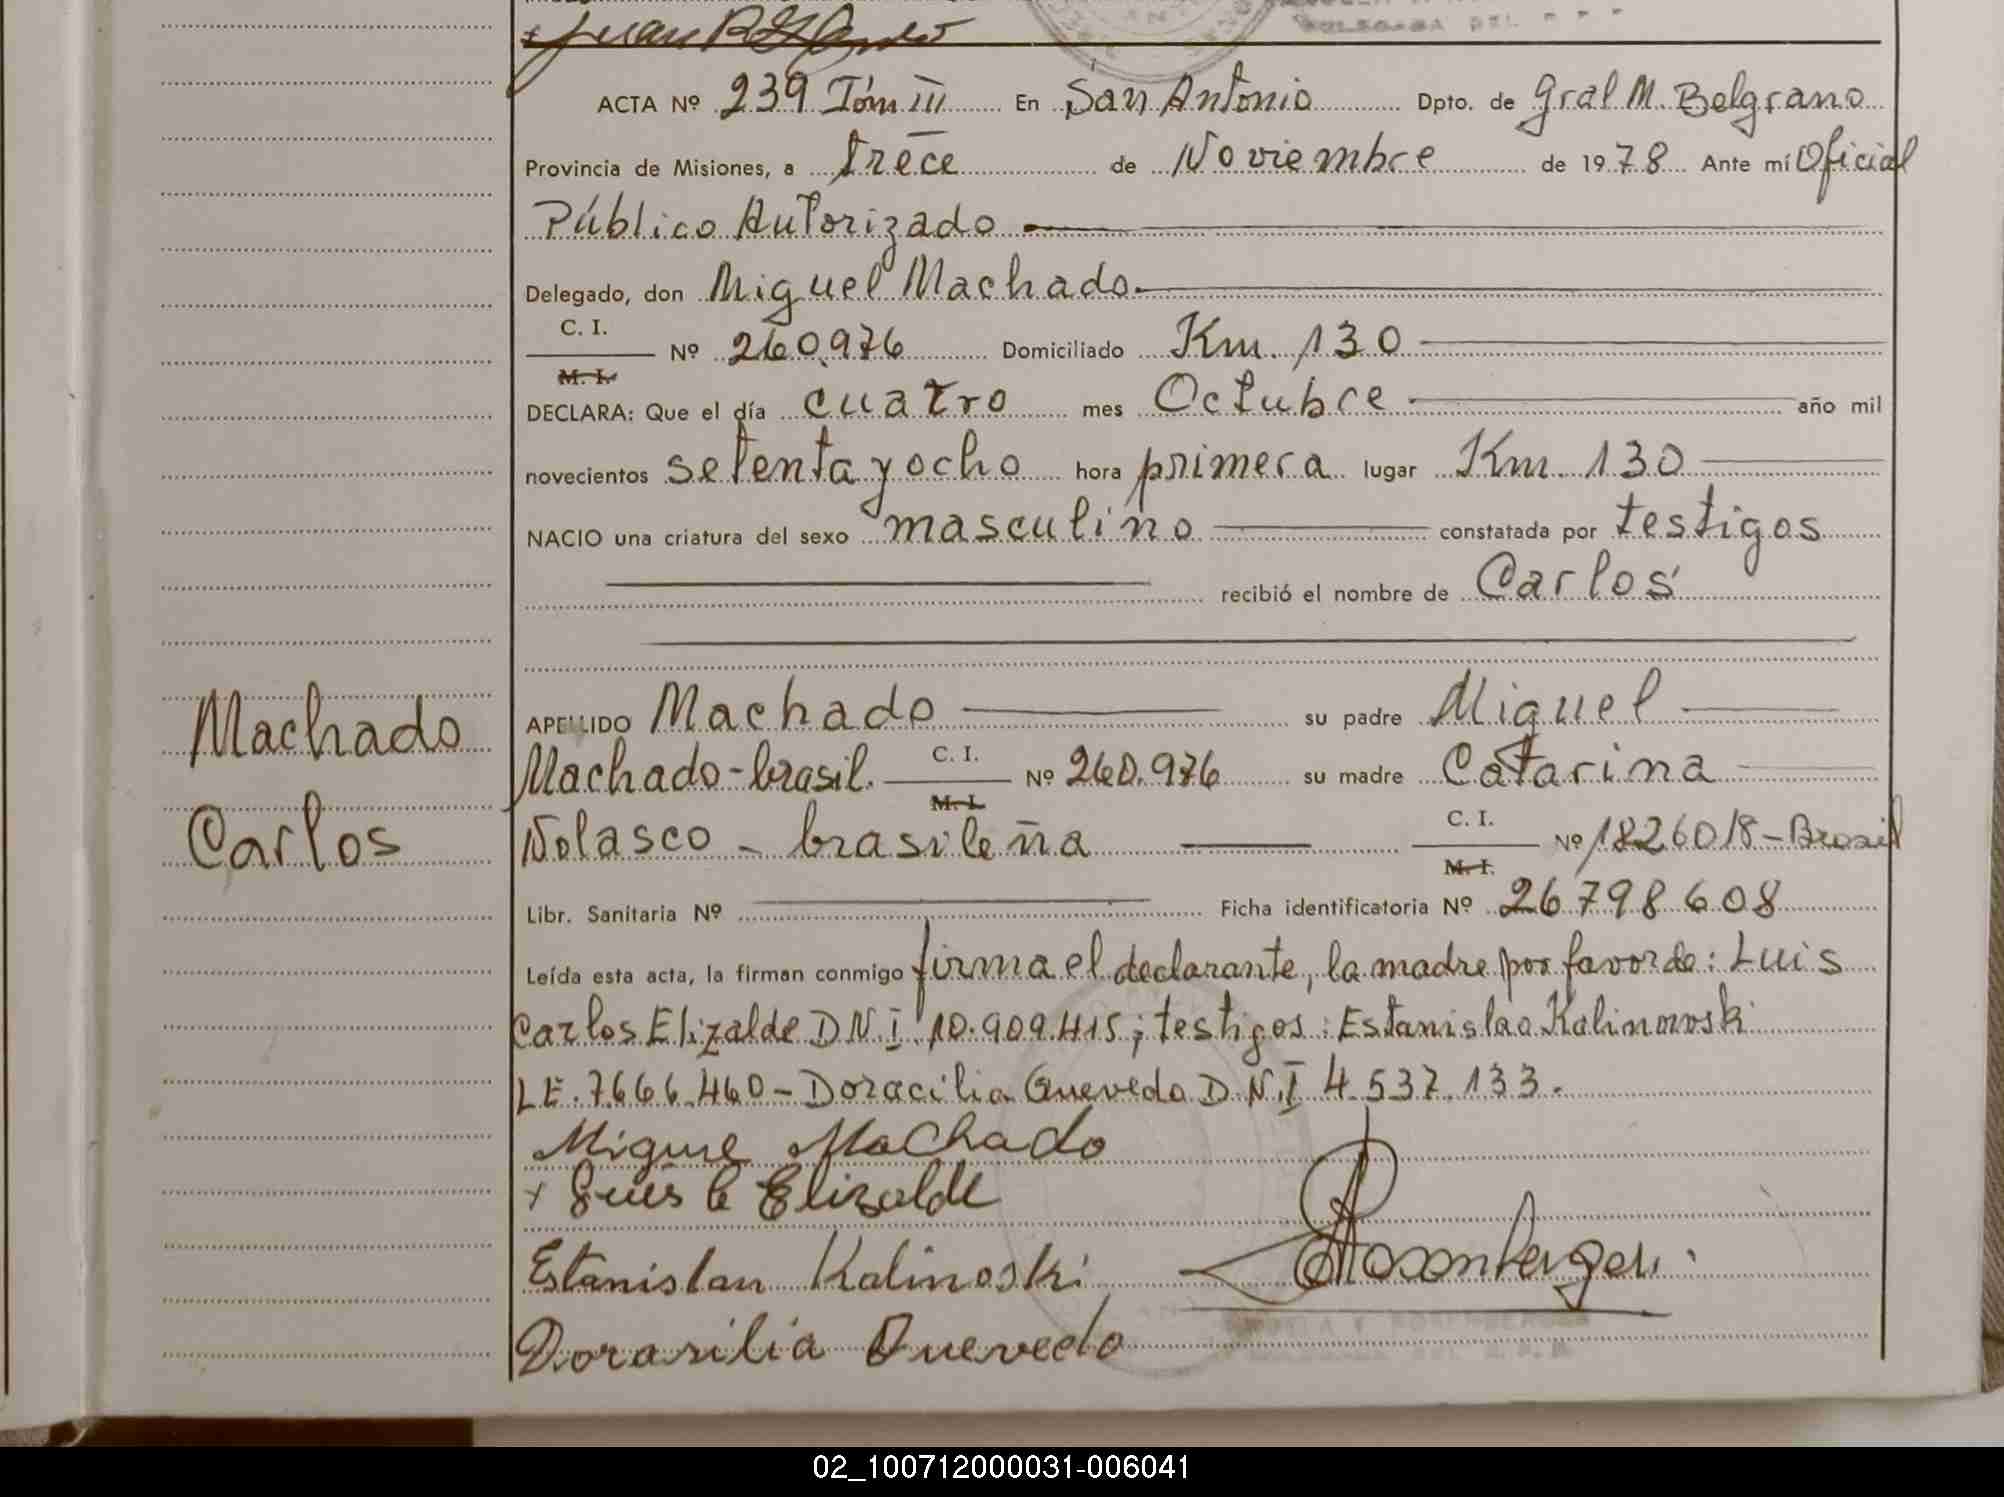 ACTA Nº 239 Tóm III En San Antonio Dpto. de Gral M. Belgrano
Provincia de Misiones, a trece de Noviembre de 1978 Ante mí Oficial
Público Autorizado
Delegado, don Miguel Machado.
C. I.
Nº 260.976 Domiciliado Km. 130
M. I.
DECLARA: Que el día cuatro mes Octubre año mil
novecientos setenta y ocho hora primera lugar Km. 130
NACIO una criatura del sexo masculino constatada por testigos
recibió el nombre de Carlos
Machado
APELLIDO Machado su padre Miguel
Machado-brasil. C. I. Nº 260.976 su madre Catarina
M. I.
Carlos
Nolasco - brasileña C. I. Nº 1826018-Brasil
M. I.
Libr. Sanitaria Nº Ficha identificatoria Nº 26798608
Leída esta acta, la firman conmigo firma el declarante, la madre por favor de: Luis
Carlos Elizalde D.N.I. 10.909.415; testigos: Estanislao Kalinowski
LE. 7.666.460 - Doracilia Quevedo D.N.I 4.537.133.
Migue Machado
+ Luis C Elizalde
Estanislau Kalinoski
Dorasilia Quevedo
02_100712000031-006041